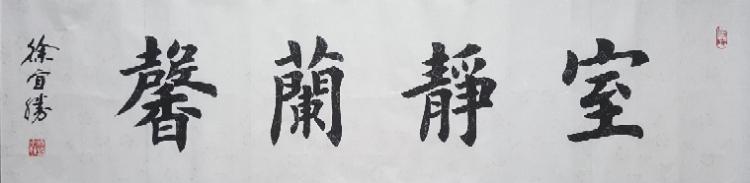 室靜蘭馨
徐宜勝